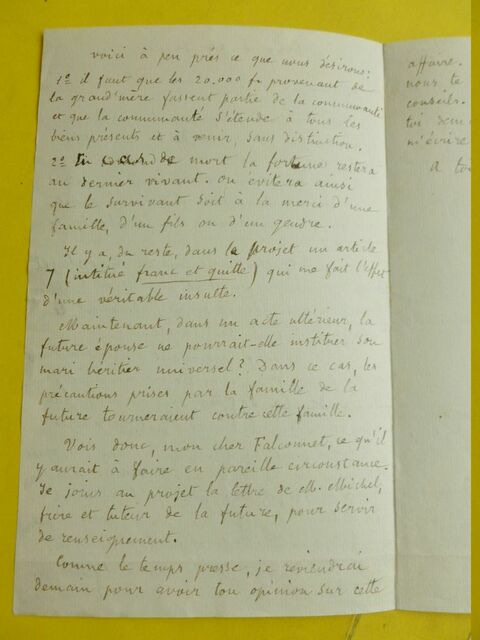 voici à peu près ce que nous désirons:
1º il faut que les 20.000 f. provenant de
la grand'mère fassent partie de la communauté
et que la communauté s'étende à tous les
biens présents et à venir, sans distinction.
2º En cas de mort la fortune restera
au dernier vivant. On évitera ainsi
que le survivant soit à la merci d'une
famille, d'un fils ou d'un gendre.
Il y a, du reste, dans le projet un article
7 (intitulé franc et quitte) qui me fait l'effet
d'une véritable insulte.
Maintenant, dans un acte ultérieur, la
future épouse ne pourrait-elle instituer son
mari héritier universel? Dans ce cas, les
précautions prises par la famille de la
future tourneraient contre cette famille.
Vois donc, mon cher Falconnet, ce qu'il
y aurait à faire en pareille circonstance.
Je joins au projet la lettre de M. Michel,
frère et tuteur de la future, pour servir
de renseignement.
Comme le temps presse, je reviendrai
demain pour avoir ton opinion sur cette
affaire.
nous te
conseils.
toi
m'écrire
A toi